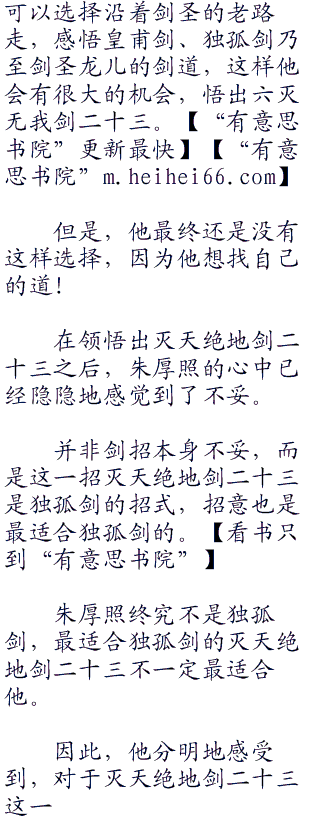 可以选择沿着剑圣的老路
走，感悟皇甫剑、独孤剑乃
至剑圣龙儿的剑道，这样他
会有很大的机会，悟出六灭
无我剑二十三。【“有意思
书院”更新最快】【“有意
思书院”m.heihei66.com】
但是，他最终还是没有
这样选择，因为他想找自己
的道！
在领悟出灭天绝地剑二
十三之后，朱厚照的心中已
经隐隐地感觉到了不妥。
并非剑招本身不妥，而
是这一招灭天绝地剑二十三
是独孤剑的招式，招意也是
最适合独孤剑的。【看书只
到“有意思书院”】
朱厚照终究不是独孤
剑，最适合独孤剑的灭天绝
地剑二十三不一定最适合
他。
因此，他分明地感受
到，对于灭天绝地剑二十三
这一